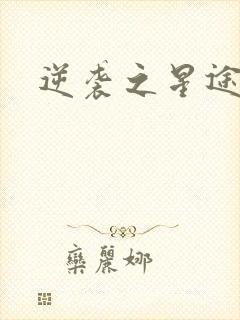 逆袭之星途
欒麗娜